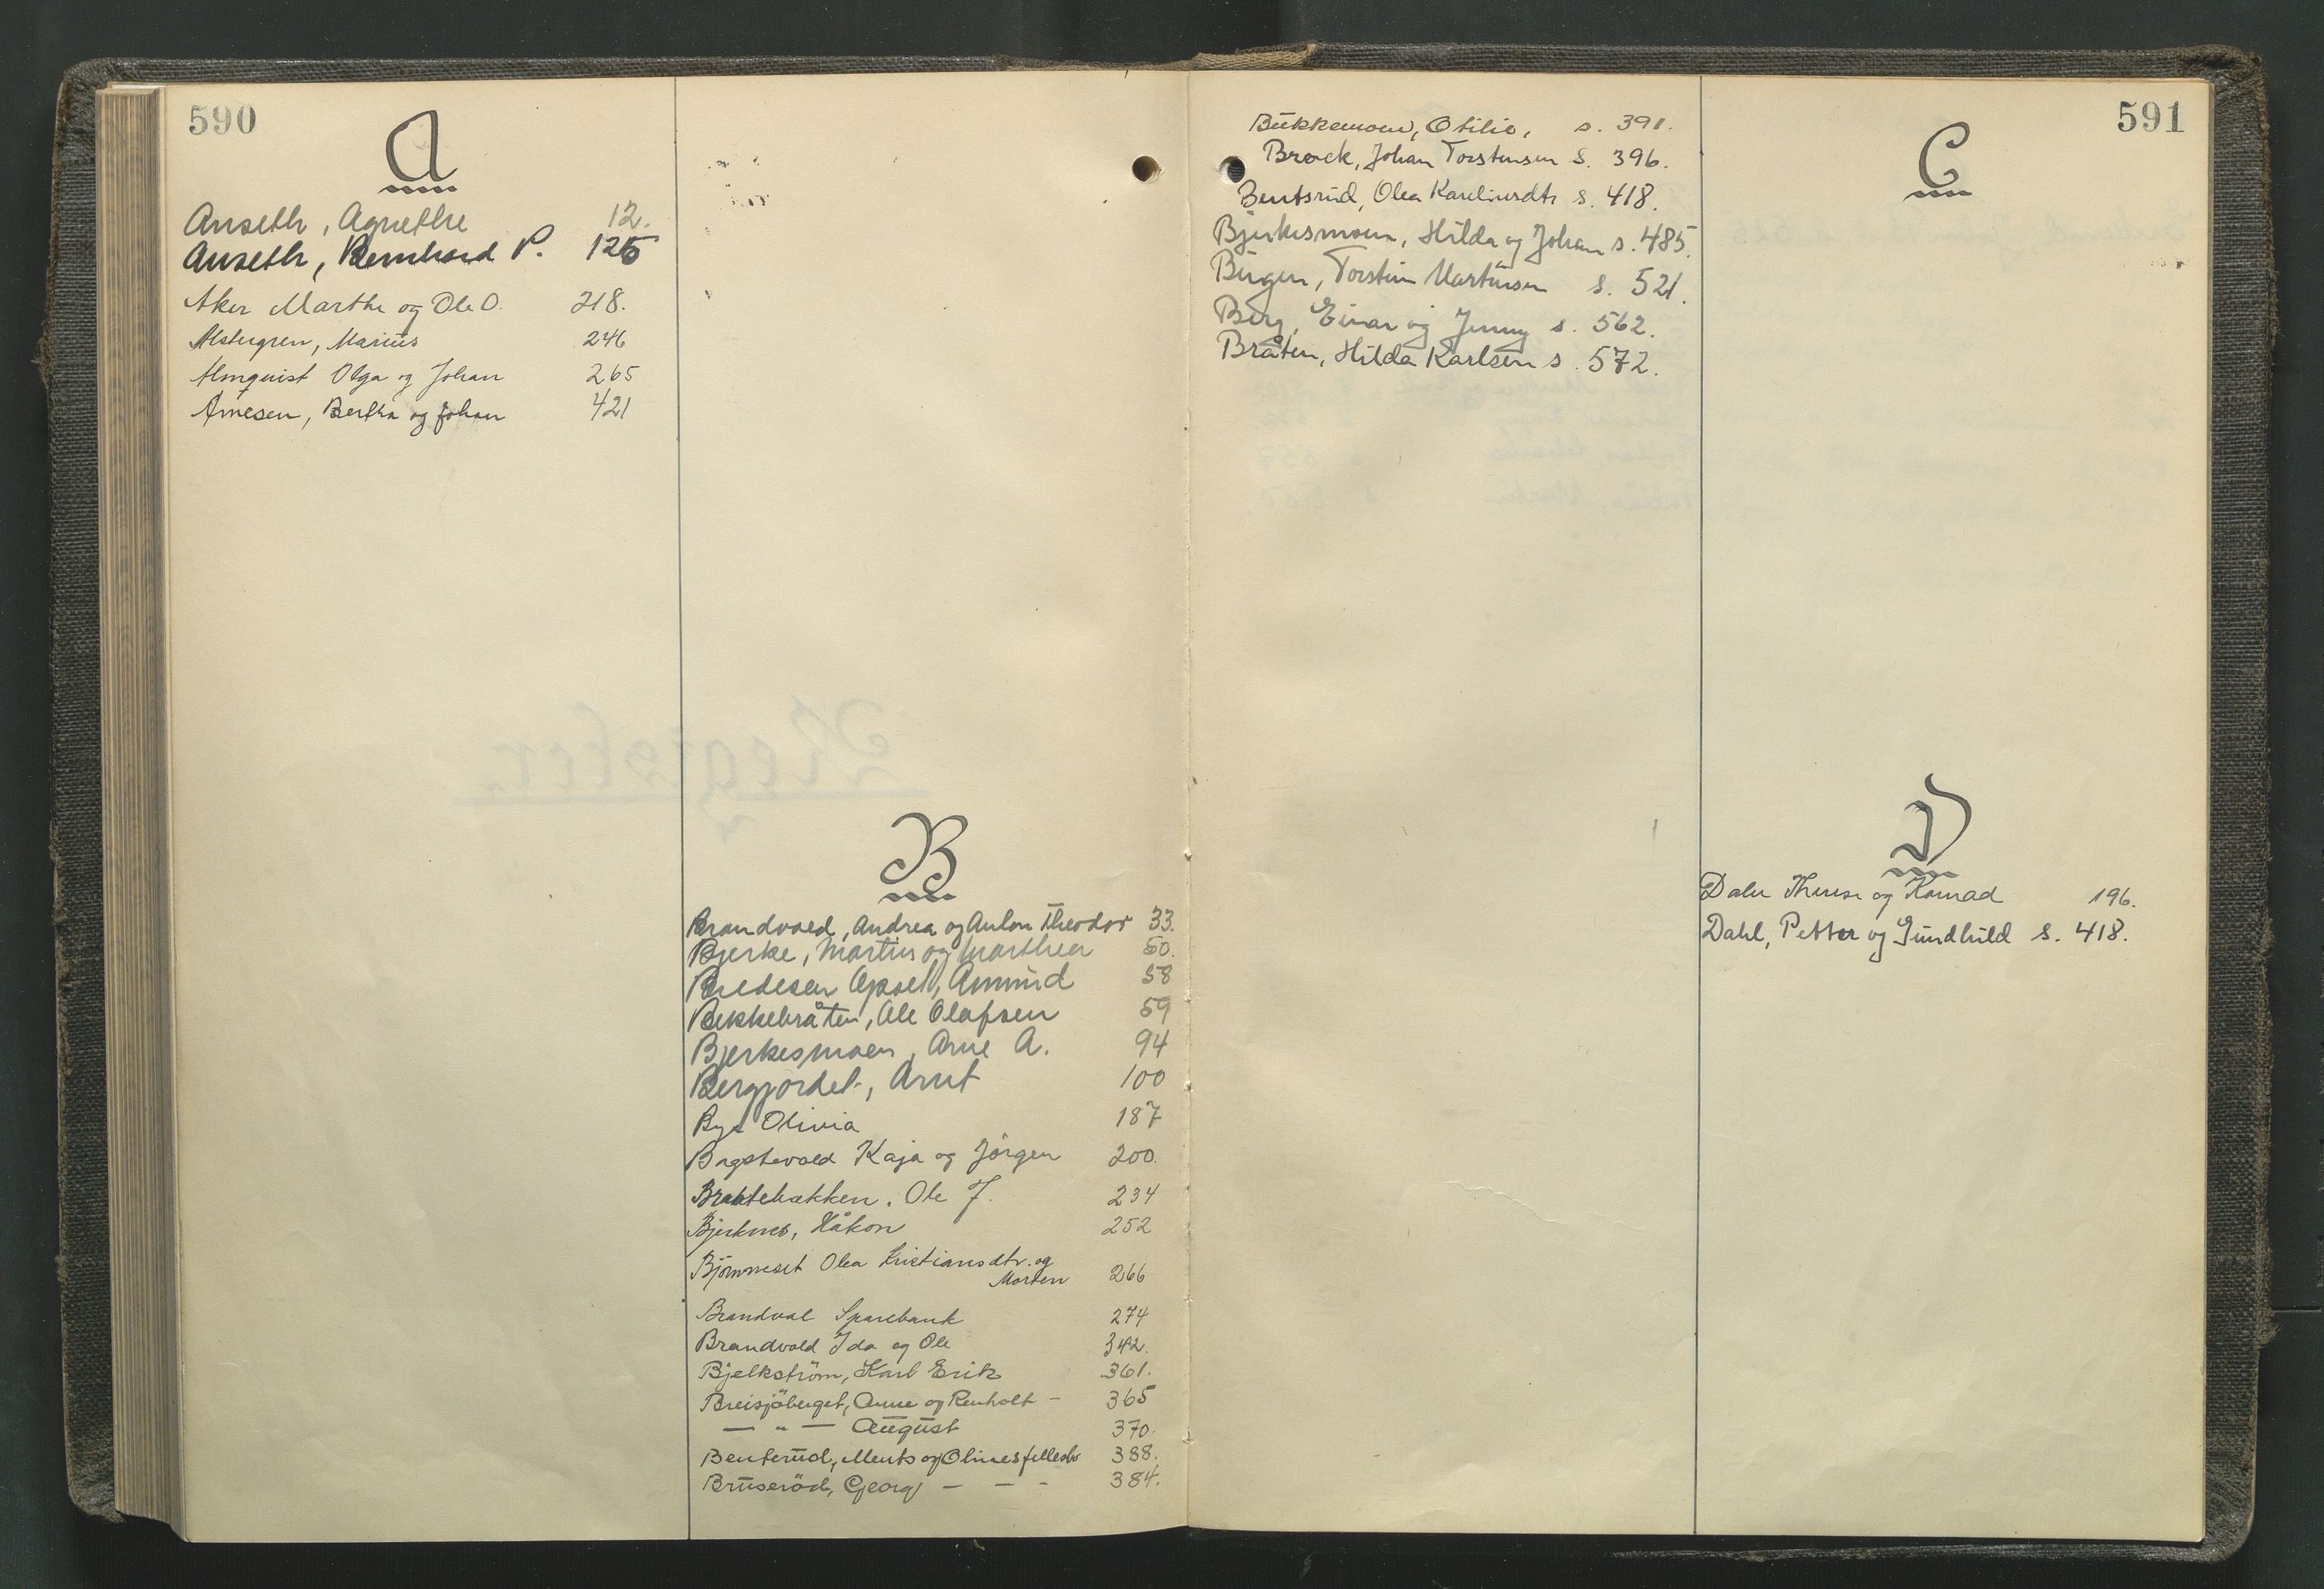 590
A
Anseth, Agnethe 12.
Anseth, Bernhard P. 125
Aker Marthe og Ole O. 218.
Alstergren, Marius 246
Almquist Olga og Johan 265
Arnesen, Bertha og Johan 421
B
Brandvold, Andrea og Anton Theodor 33.
Bjerke, Martin og Marthea 50.
Bredesen Opset, Amund 58
Bekkebråten, Ole Olafsen 59
Bjerkesmoen, Arne A. 94
Bergjordet, Arnt 100
Bye Olivia 187
Bogstevold Kaja og Jørgen 200.
Bråtebækken. Ole J. 234
Bjerknes, Håkon 252
Bjørnneset Olea Kristiansdtr. og
Morten 266
Brandval Sparebank 274
Brandvold Ida og Ole 342.
Bjelkström, Karl Erik 361.
Breisjøberget, Anne og Renholt - 365
— " — August 370.
Bentsrud, Ments og Olines fellesbo 388.
Bruserød, Georg - - - 384.
591
Bukkemoen, Otilie, s. 391.
Brock, Johan Torstensen s. 396.
Bentsrud, Olea Karelinsdtr s. 418.
Bjerkesmoen, Hilda og Johan s. 485.
Bergen, Torstein Martinsen s. 521.
Berg, Einar og Jenny s. 562.
Bråten, Hilda Karlsen s. 572.
C
D
Dalen Therese og Konrad 196.
Dahl, Petter og Gundhild s. 418.
Register